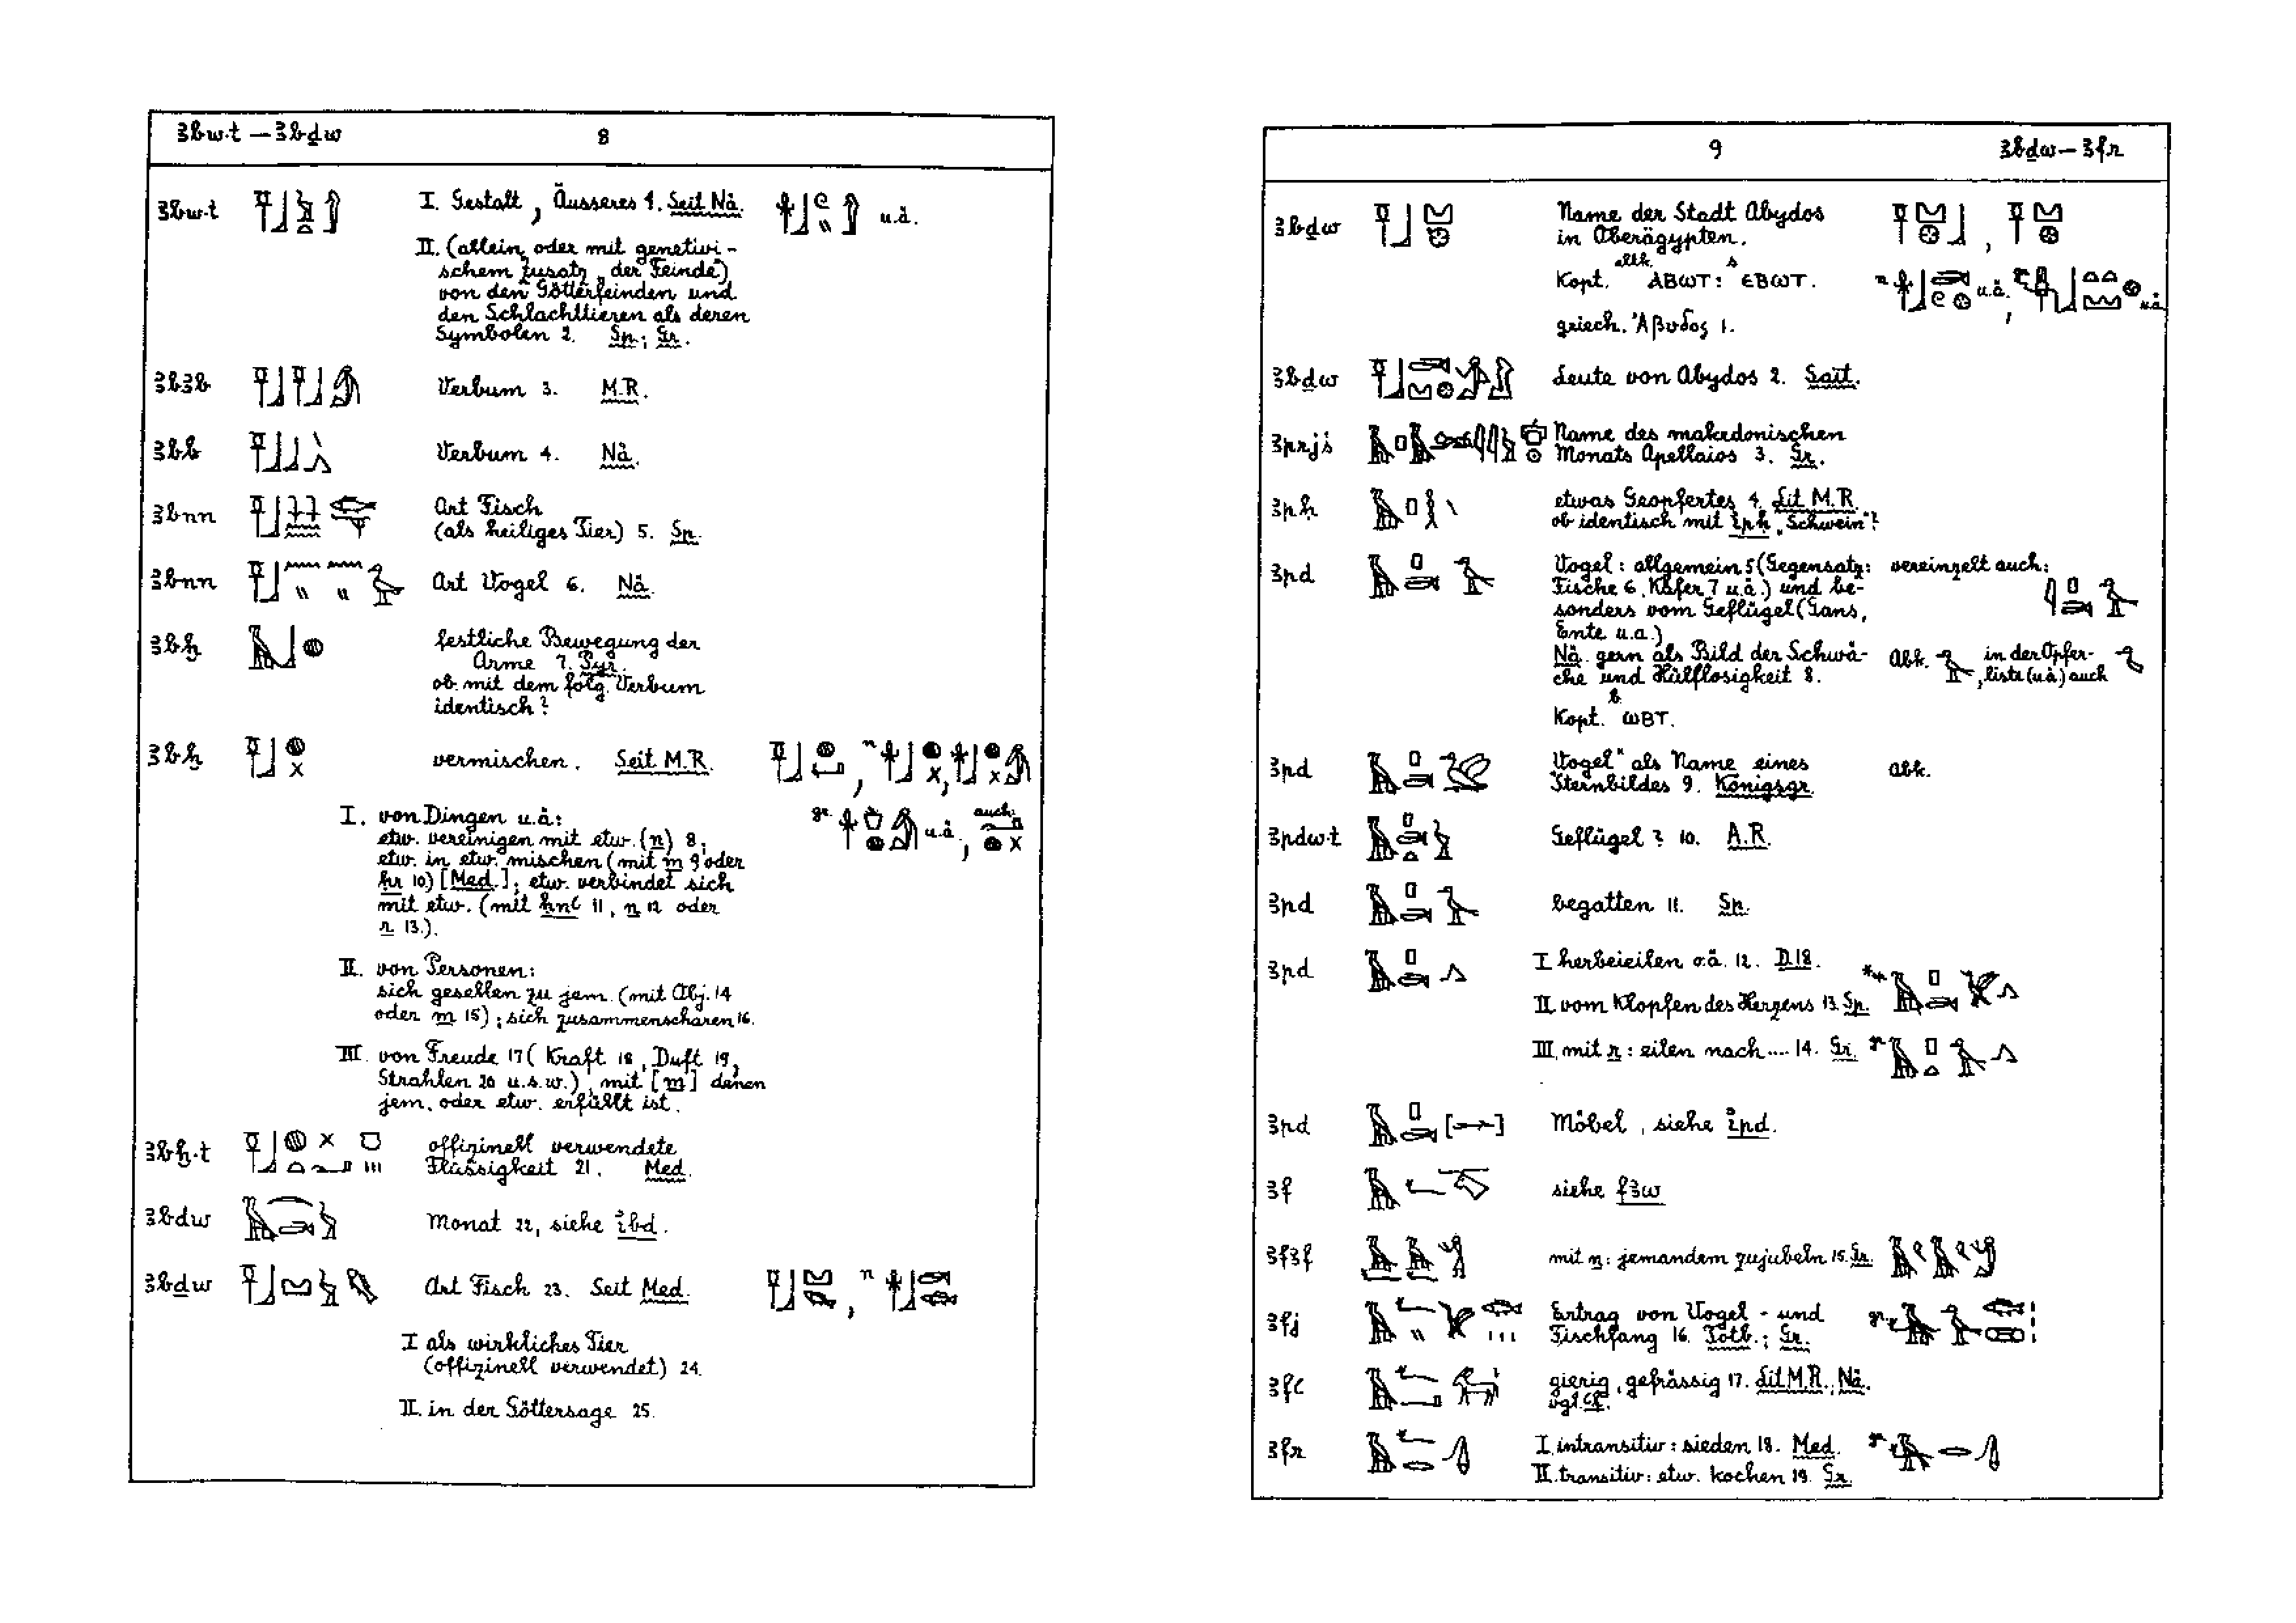 ꜣbw.t — ꜣbḏw 8
ꜣbw.t I. Gestalt, Äusseres 1. Seit Nä. u.ä.
II. (allein oder mit genetivi-
schem Zusatz „der Feinde")
von den Götterfeinden und
den Schlachttieren als deren
Symbolen 2. Sp.; Gr.
ꜣbꜣb Verbum 3. M.R.
ꜣbb Verbum 4. Nä.
ꜣbnn Art Fisch
(als heiliges Tier) 5. Sp.
ꜣbnn Art Vogel 6. Nä.
ꜣbḫ festliche Bewegung der
Arme 7. Pyr.
ob mit dem folg. Verbum
identisch?
ꜣbḫ vermischen. Seit M.R.
I. von Dingen u.ä:
etw. vereinigen mit etw. (n) 8;
etw. in etw. mischen (mit m 9 oder
ḥr 10) [Med.]; etw. verbindet sich
mit etw. (mit ḥnꜥ 11, n 12 oder
r 13.).
gr. u.ä, auch:
II. von Personen:
sich gesellen zu jem. (mit Obj. 14
oder m 15); sich zusammenscharen 16.
III. von Freude 17 (Kraft 18, Duft 19,
Strahlen 20 u.s.w.), mit [m] denen
jem. oder etw. erfüllt ist.
ꜣbḫ.t offizinell verwendete
Flüssigkeit 21. Med.
ꜣbdw Monat 22, siehe ꞽbd.
ꜣbḏw Art Fisch 23. Seit Med.
I als wirkliches Tier
(offizinell verwendet) 24.
II. in der Göttersage 25.
9 ꜣbḏw — ꜣfr
ꜣbḏw Name der Stadt Abydos
in Oberägypten.
Kopt. altk. ⲀⲂⲰⲦ: s ⲈⲂⲰⲦ. n u.ä.; u.ä.
griech. Ἄβυδος 1.
ꜣbḏw Leute von Abydos 2. Sait.
ꜣprjś Name des makedonischen
Monats Apellaios 3. Gr.
ꜣpḥ etwas Geopfertes 4. Lit M.R.
ob identisch mit ꞽpḥ „Schwein"?
ꜣpd Vogel: allgemein 5 (Gegensatz: vereinzelt auch:
Fische 6, Käfer 7 u.ä.) und be-
sonders vom Geflügel (Gans,
Ente u.a.)
Nä. gern als Bild der Schwä- Abk. , in der Opfer-
che und Hülflosigkeit 8. liste (u.ä.) auch
Kopt. b ⲰⲂⲦ.
ꜣpd „Vogel" als Name eines Abk.
Sternbildes 9. Königsgr.
ꜣpdw.t Geflügel? 10. A.R.
ꜣpd begatten 11. Sp.
ꜣpd I herbeieilen o.ä. 12. D.18.
II vom Klopfen des Herzens 13. Sp.
III. mit r: eilen nach .... 14. Gr. gr.
ꜣpd Möbel, siehe ꞽpd.
ꜣf siehe fꜣw
ꜣfꜣf mit n: jemandem zujubeln 15. Gr.
ꜣfj Ertrag von Vogel- und gr.
Fischfang 16. Totb.; Gr.
ꜣfꜥ gierig, gefrässig 17. Lit M.R.; Nä.
vgl. ꜥf.
ꜣfr I. intransitiv: sieden 18. Med. gr.
II. transitiv: etw. kochen 19. Gr.